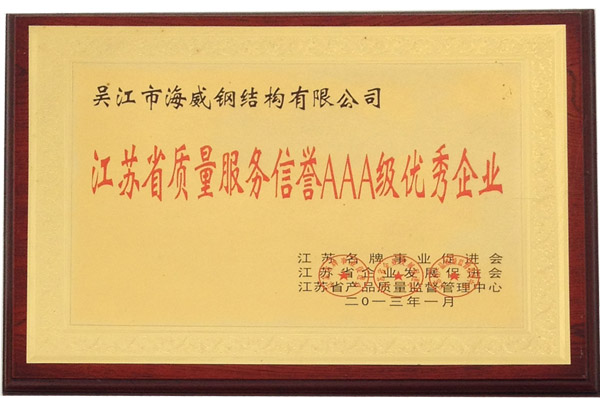 吴江市海威钢结构有限公司
江苏省质量服务信誉AAA级优秀企业
江苏名牌事业促进会
江苏省企业发展促进会
江苏省产品质量监督管理中心
二〇一三年一月